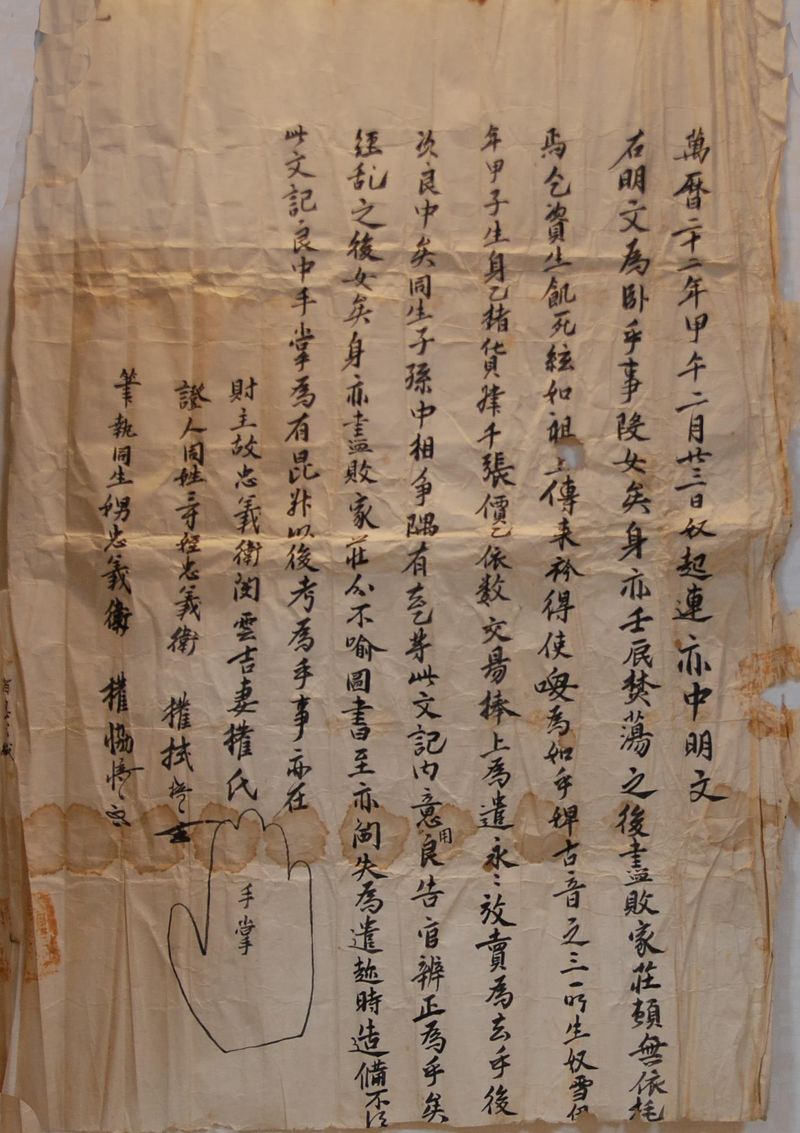 萬曆二十二年甲午二月廿三日奴起連亦中明文
右明文為臥乎事段女矣身亦壬辰焚蕩之後盡敗家莊頼無依托
為乞資生飢死絃如祖上傳来衿得使喚為如乎婢古音之三所生奴雪
年甲子生身乙楮貨肆千張價乙依數交易捧上為遣永〻放賣為去乎後
次良中矣同生子孫中相争隅有去乙等此文記內意用良告官辨正為乎矣
経乱之後女矣身亦盡敗家莊叱不喻圖書至亦閪失為遣趂時造備不
此文記良中手掌為有昆幷以後考為乎事亦在
財主故忠義衛閔雲吉妻權氏
手掌
證人同姓三寸姪忠義衛 權拭
筆執同生娚忠義衛 權恊